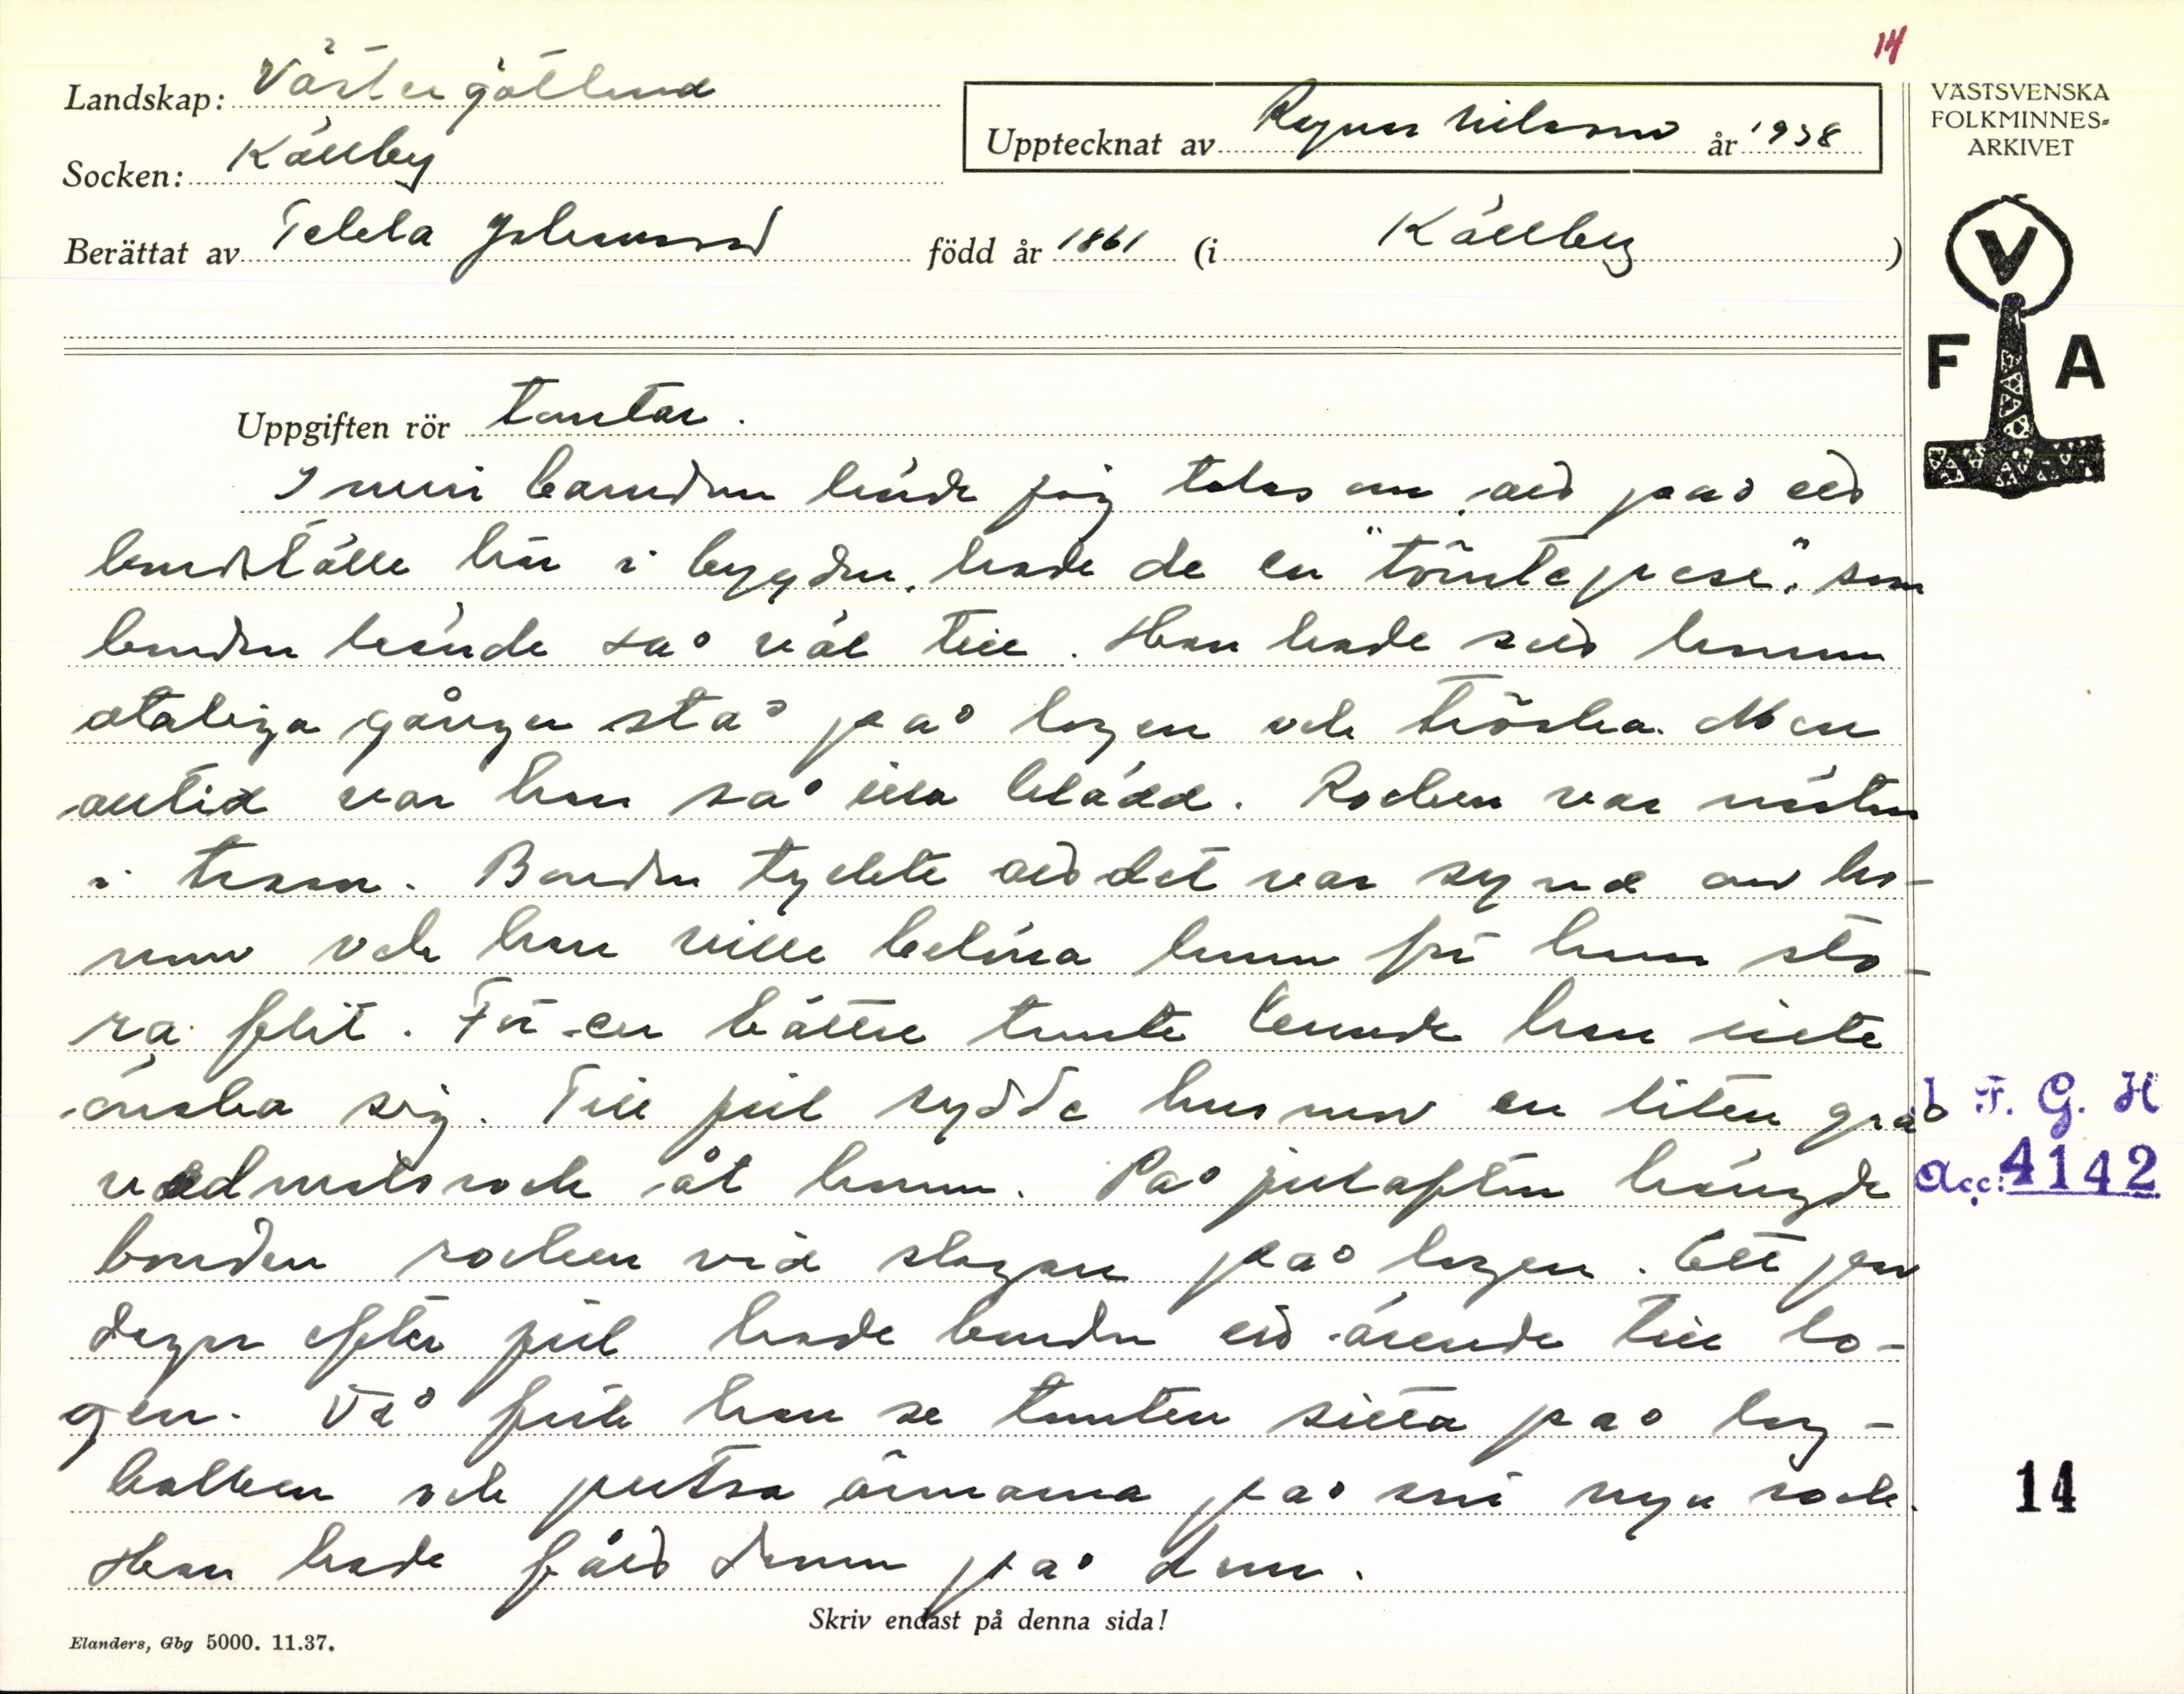 14
Landskap: Västergötland
Socken: Källby
Upptecknat av Ragnar Nilsson år 1938
Berättat av Tekla Johansson född år 1861 (i Källby)
VÄSTSVENSKA
FOLKMINNES-
ARKIVET
V
F A
Uppgiften rör tomtar.
I min barndom hörde jag talas om att på ett
bondställe här i bygden hade de en "tomtepase", som
bonden kände så väl till. Han hade sett honom
otaliga gånger stå på logen och tröska. Men
alltid var han så illa klädd. Rocken var nästan
i trasor. Bonden tyckte att det var synd om ho-
nom och han ville belöna honom för hans sto-
ra flit. För en bättre tomte kunde han inte
önska sig. Till jul sydde husmor en liten grå
vadmalsrock åt honom. På julafton hängde
bonden rocken vid slagan på logen. Ett par
dagar efter jul hade bonden ett ärende till lo-
gen. Då fick han se tomten sitta på log-
balken och putsa ärmarna på sin nya rock.
Han hade fått damm på den.
I F. G. H
Acc: 4142
14
Skriv endast på denna sida!
Elanders, Gbg 5000. 11.37.